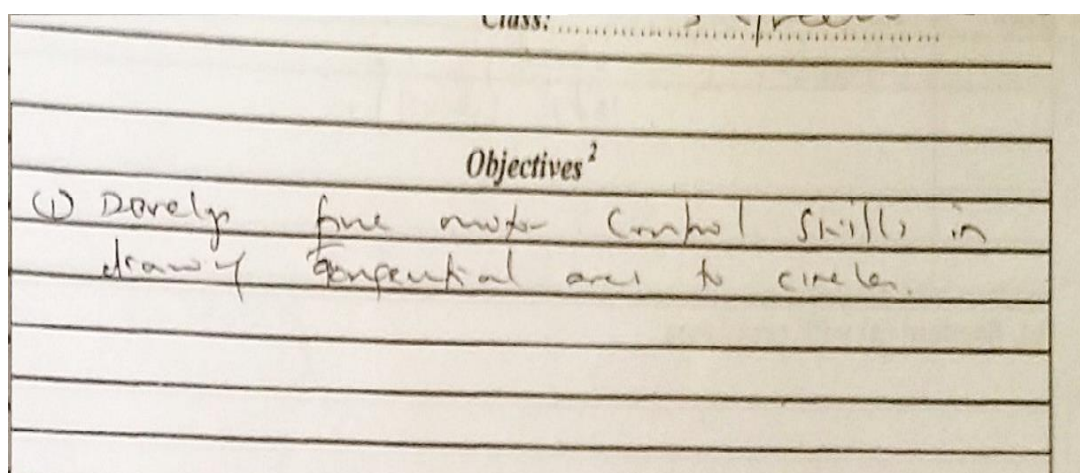 Class: 3 Green
Objectives²
(1) Develop fine motor control skills in
drawing tangential arcs to circles.